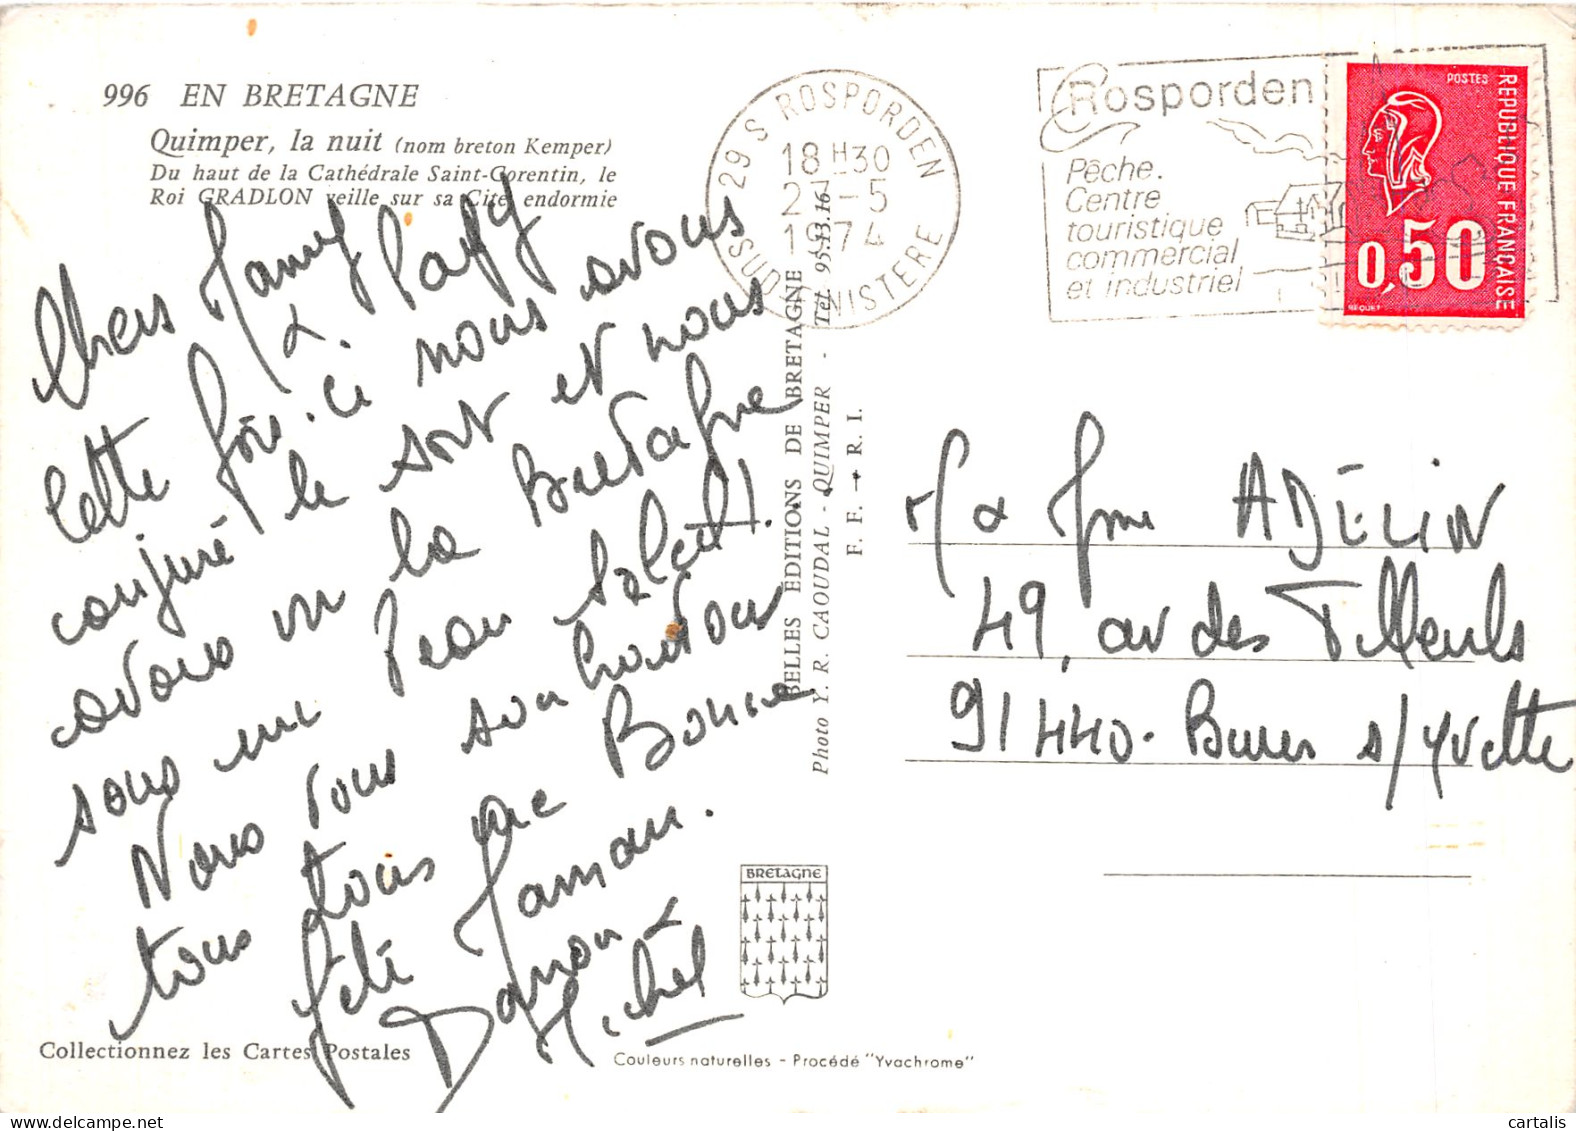 996 EN BRETAGNE
Quimper, la nuit (nom breton Kemper)
Du haut de la Cathédrale Saint-Corentin, le
Roi GRADLON veille sur sa Cité endormie
Chers Mamy
& Papy
Cette fois-ci nous avons
conjuré le sort et nous
avons vu la Bretagne
sous un beau soleil!
Nous vous souhaitons
tous une Bonne
fête Maman.
&
Michel
Collectionnez les Cartes Postales
29 S ROSPORDEN
18 H 30
27-5
1974
SUD FINISTERE
Rosporden
Pêche.
Centre
touristique
commercial
et industriel
POSTES
REPUBLIQUE FRANÇAISE
0,50
BEQUET
BELLES ÉDITIONS DE BRETAGNE
Photo Y. R. CAOUDAL - QUIMPER - Tél. 95.13.16
F. F. → R. I.
M & Mme ADÉLIN
49, av des Tilleuls
91440. Bures s/Yvette
BRETAGNE
Couleurs naturelles - Procédé "Yvachrome"
cartalis